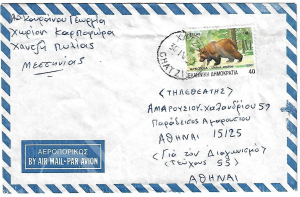 Γεωργία
Χωρίον Καρποφόρα
Χανδζή Πυλίας
Μεσσηνίας
CHATZI
ΕΛΛΗΝΙΚΗ ΔΗΜΟΚΡΑΤΙΑ 40
"ΤΗΛΕΘΕΑΤΗΣ"
ΑΜΑΡΟΥΣΙΟΥ-Χαλανδρίου 57
Παράδεισος Αμαρουσίου
ΑΘΗΝΑΙ 15125
(Για τον Διαγωνισμό)
(Τεύχους 55)
ΑΘΗΝΑΙ
ΑΕΡΟΠΟΡΙΚΩΣ
BY AIR MAIL-PAR AVION